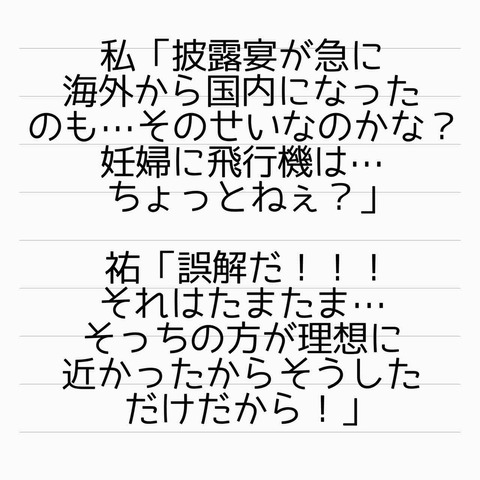 私「披露宴が急に
海外から国内になった
のも…そのせいなのかな？
妊婦に飛行機は…
ちょっとねぇ？」
祐「誤解だ！！！
それはたまたま…
そっちの方が理想に
近かったからそうした
だけだから！」